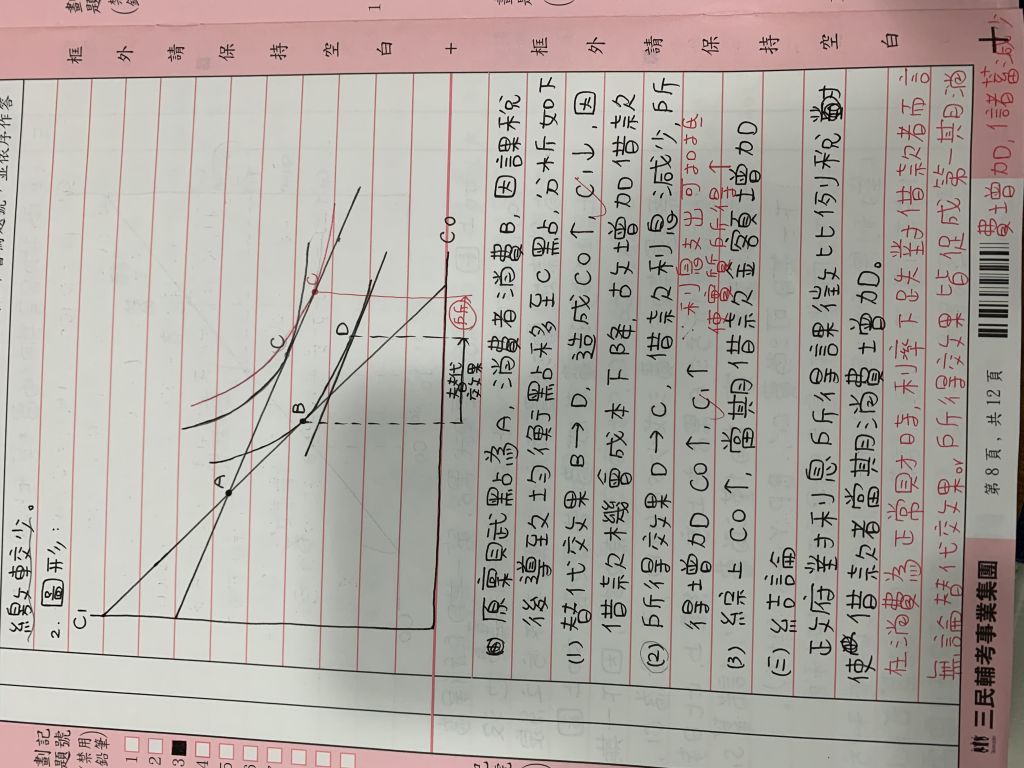 框外請保持空白
框外請保持空白
劃記題號
(禁用鉛筆)
1
2
3
4
5
6
7
2. 圖形:
C1
A
B
C
D
C
C0
替代效果
所
原稟賦點為A,消費者消費B,因課稅
後導致均衡點移至C點,分析如下
(1) 替代效果 B→D,造成C0↑,C1↓,因
借款機會成本下降,故增加借款
(2) 所得效果 D→C,借款利息減少,所
得增加 C0↑,C1↑
∵利息支出可扣抵
使實質所得↑
(3) 綜上 C0↑,當期借款金額增加
(三) 結論
政府對利息所得課徵比例稅
使借款者當期消費增加。
在消費為正常財時,利率下跌對借款者而言
無論替代效果or所得效果皆促成第一期消
費增加,儲蓄減少
第8頁,共12頁
三民輔考事業集團